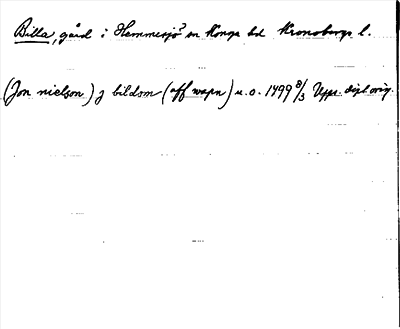 Billa, gård i Hemmesjö sn Konga hd Kronobergs l.
(Jon nielson) j bildom (aff wapn) u.o. 1499 8/3 Upps. dipl orig.